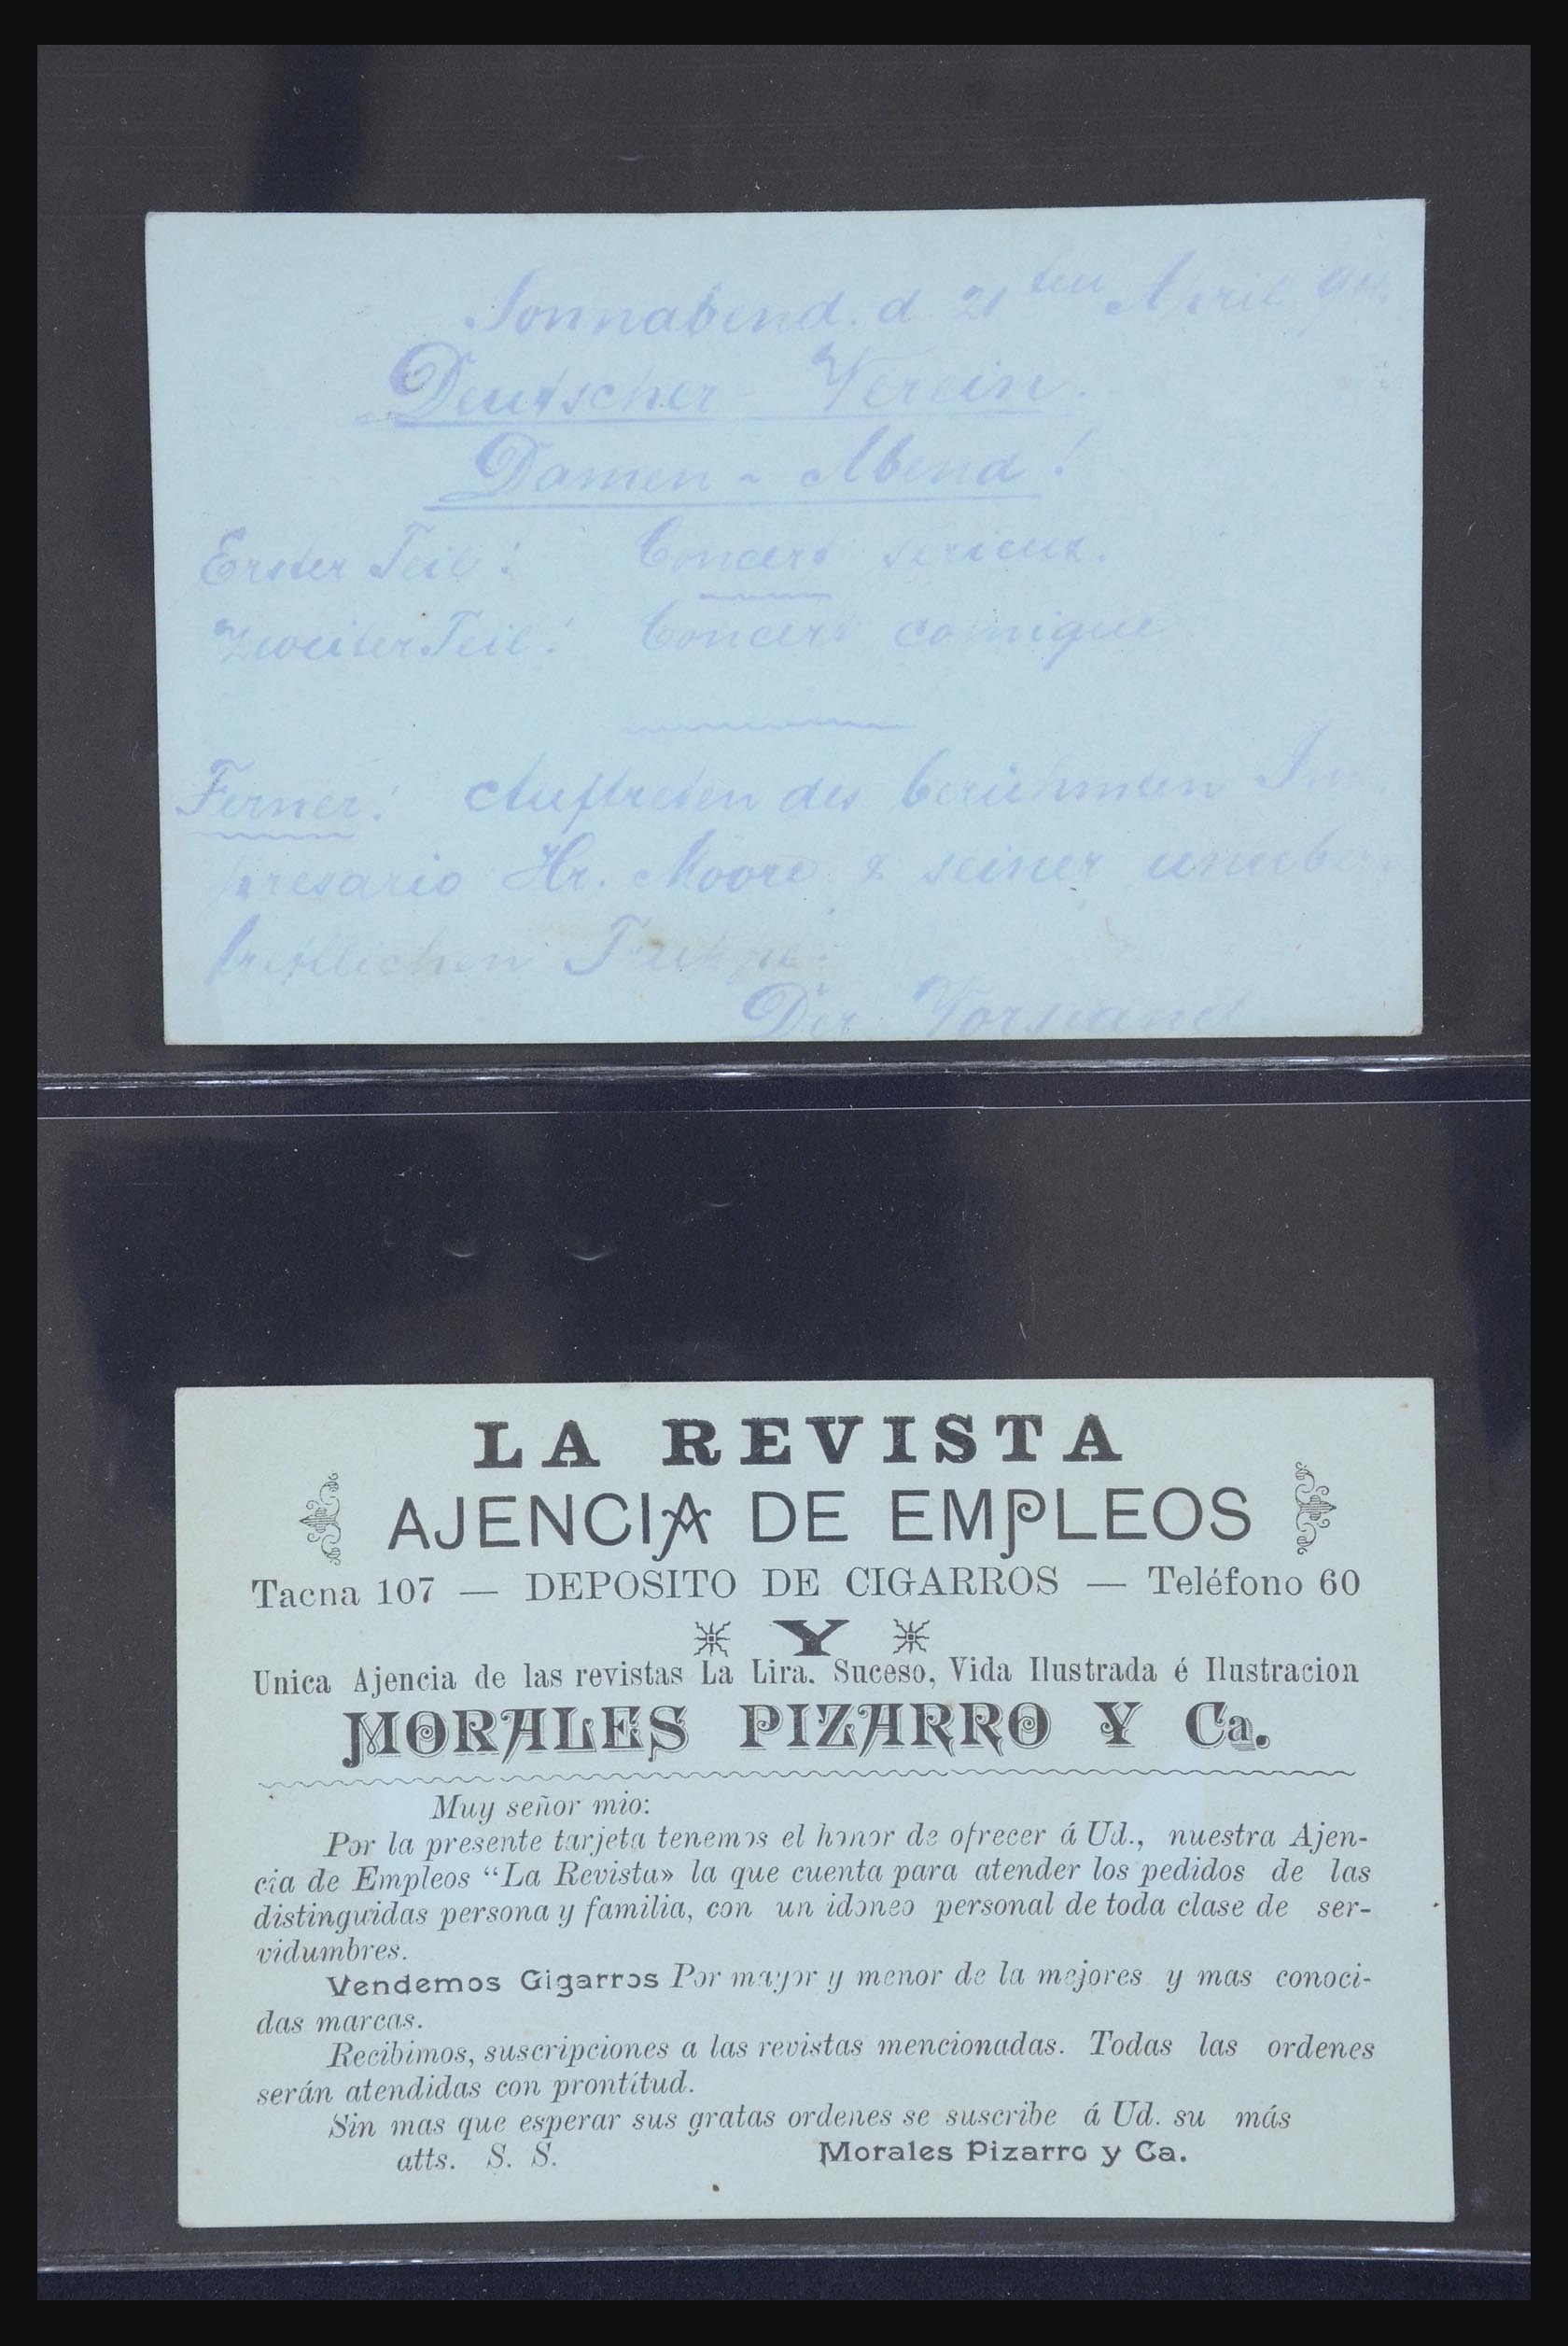 Sonnabend. d. 21ten April 94.
Deutscher Verein.
Damen - Abend!
Erster Teil: Concert serieux.
Zweiter Teil: Concert comique
Ferner: Auftreten des berühmten Im
presario Hr. Moore & seiner unüber-
trefflichen
Der Vorstand
LA REVISTA
AJENCIA DE EMPLEOS
Tacna 107 — DEPOSITO DE CIGARROS — Teléfono 60
Y
Unica Ajencia de las revistas La Lira. Suceso, Vida Ilustrada é Ilustracion
MORALES PIZARRO Y Ca.
Muy señor mio:
Por la presente tarjeta tenemos el honor de ofrecer á Ud., nuestra Ajen-
cia de Empleos “La Revista» la que cuenta para atender los pedidos de las
distinguidas persona y familia, con un idoneo personal de toda clase de ser-
vidumbres.
Vendemos Gigarros Por mayor y menor de la mejores y mas conoci-
das marcas.
Recibimos, suscripciones a las revistas mencionadas. Todas las ordenes
serán atendidas con prontitud.
Sin mas que esperar sus gratas ordenes se suscribe á Ud. su más
atts. S. S. Morales Pizarro y Ca.